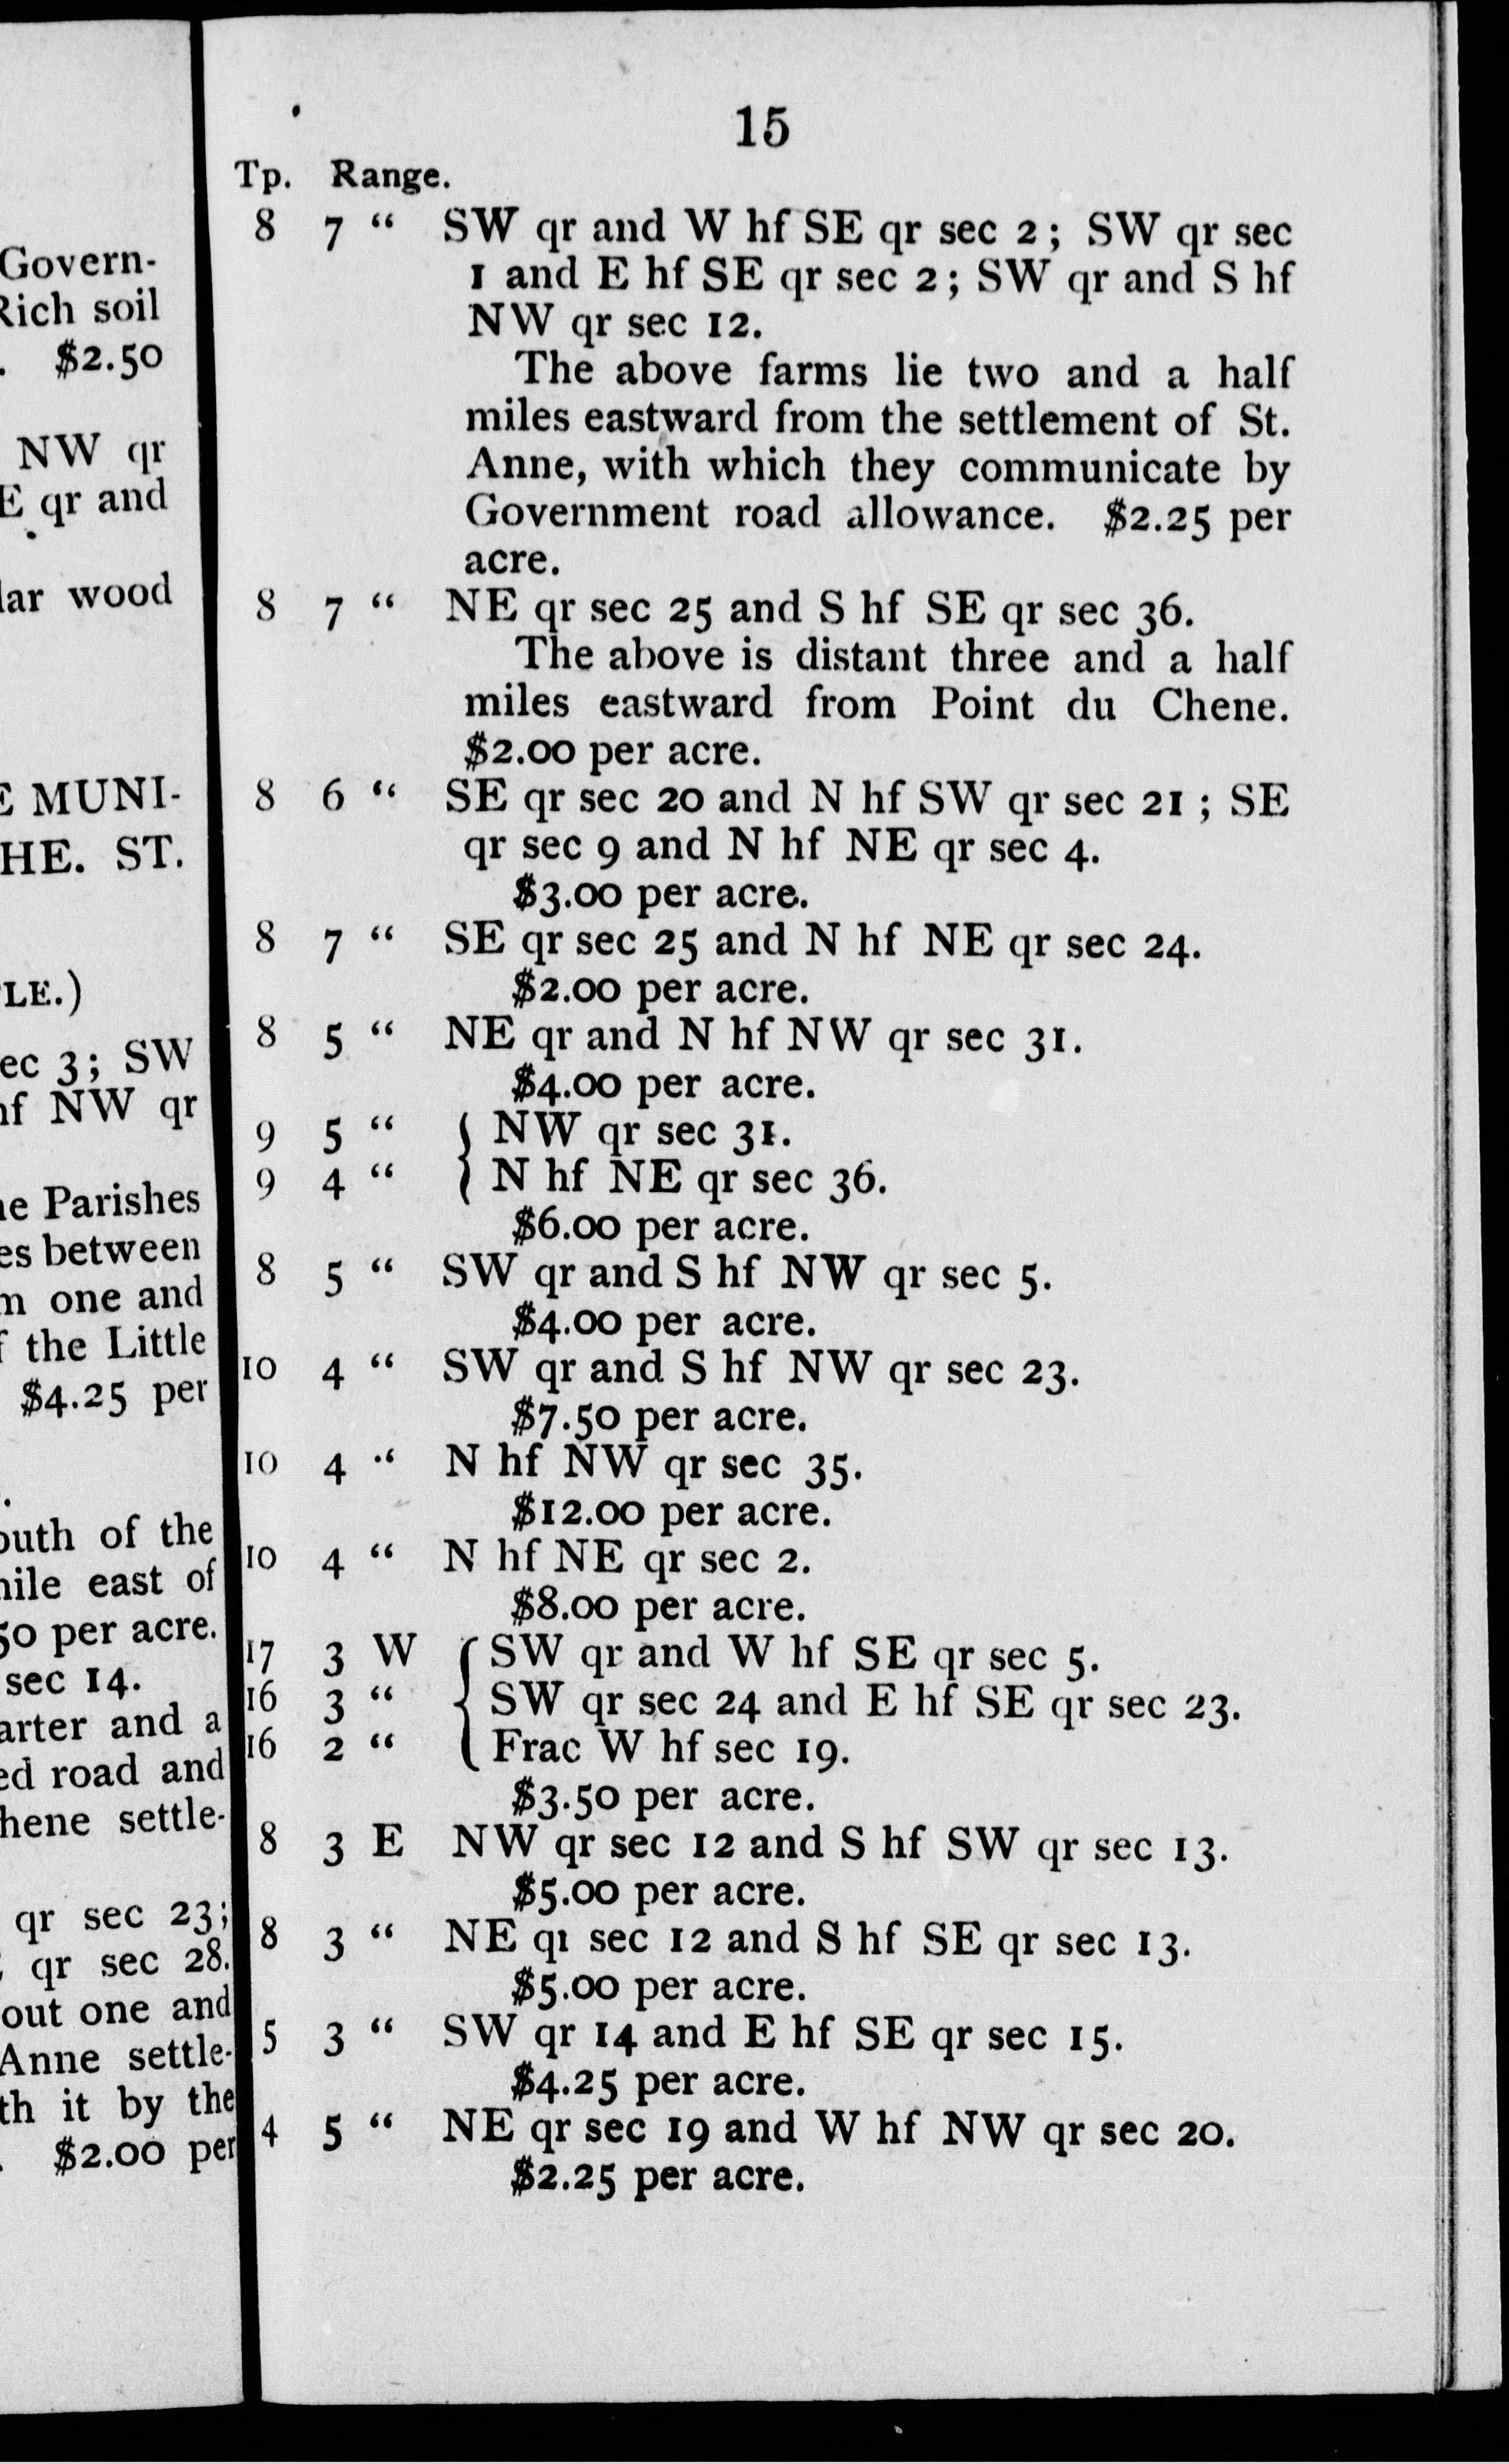 Govern-
Rich soil
. $2.50
NW qr
E qr and
lar wood
E MUNI-
HE. ST.
LE.)
ec 3; SW
hf NW qr
he Parishes
es between
m one and
f the Little
$4.25 per
outh of the
nile east of
50 per acre.
sec 14.
arter and a
ed road and
hene settle-
qr sec 23;
; qr sec 28.
out one and
Anne settle-
th it by the
. $2.00 per
15
Tp. Range.
8 7 “ SW qr and W hf SE qr sec 2; SW qr sec
1 and E hf SE qr sec 2; SW qr and S hf
NW qr sec 12.
The above farms lie two and a half
miles eastward from the settlement of St.
Anne, with which they communicate by
Government road allowance. $2.25 per
acre.
8 7 “ NE qr sec 25 and S hf SE qr sec 36.
The above is distant three and a half
miles eastward from Point du Chene.
$2.00 per acre.
8 6 “ SE qr sec 20 and N hf SW qr sec 21; SE
qr sec 9 and N hf NE qr sec 4.
$3.00 per acre.
8 7 “ SE qr sec 25 and N hf NE qr sec 24.
$2.00 per acre.
8 5 “ NE qr and N hf NW qr sec 31.
$4.00 per acre.
9 5 “ { NW qr sec 31.
9 4 “ { N hf NE qr sec 36.
$6.00 per acre.
8 5 “ SW qr and S hf NW qr sec 5.
$4.00 per acre.
10 4 “ SW qr and S hf NW qr sec 23.
$7.50 per acre.
10 4 “ N hf NW qr sec 35.
$12.00 per acre.
10 4 “ N hf NE qr sec 2.
$8.00 per acre.
17 3 W { SW qr and W hf SE qr sec 5.
16 3 “ { SW qr sec 24 and E hf SE qr sec 23.
16 2 “ { Frac W hf sec 19.
$3.50 per acre.
8 3 E NW qr sec 12 and S hf SW qr sec 13.
$5.00 per acre.
8 3 “ NE qr sec 12 and S hf SE qr sec 13.
$5.00 per acre.
5 3 “ SW qr 14 and E hf SE qr sec 15.
$4.25 per acre.
4 5 “ NE qr sec 19 and W hf NW qr sec 20.
$2.25 per acre.